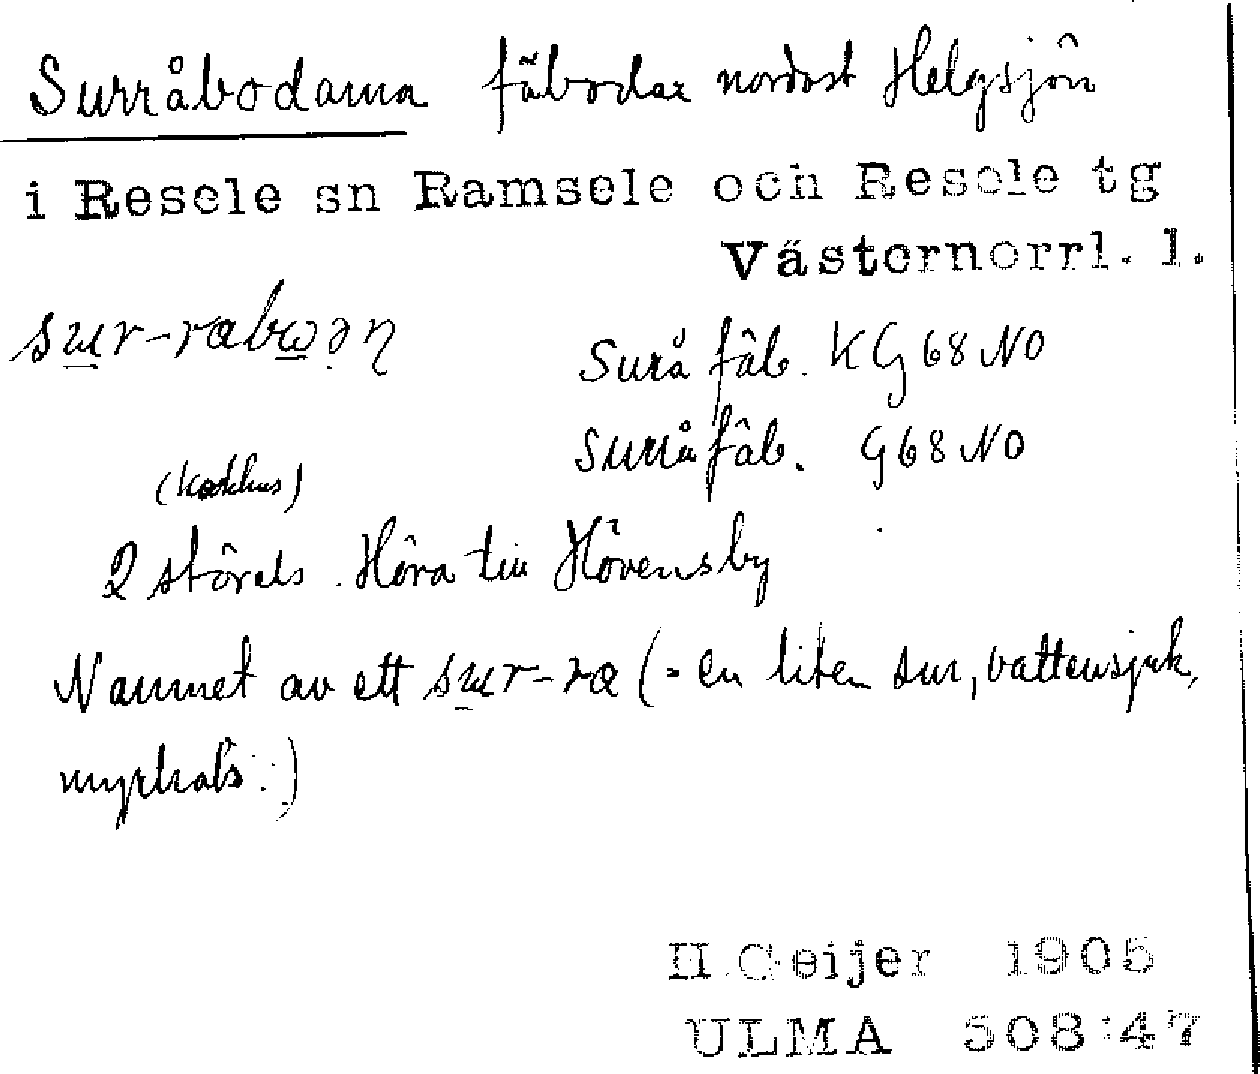 Surråbodarna fäbodar nordost Helgsjön
i Resele sn Ramsele och Resele tg
Västernorrl. l.
sur-rabωən
Surå fäb. KG 68 NO
Surrå fäb. G 68 NO
(kokhus)
2 störels. Höra till Hövensby
Namnet av ett sur-ra (= en liten sur, vattensjuk,
myrhals:)
H.Geijer 1905
ULMA 508:47